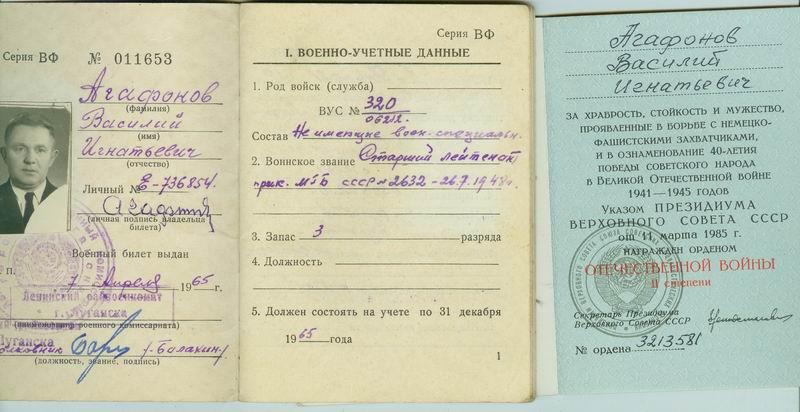 Серия ВФ № 011653
Агафонов
(фамилия)
Василий
(имя)
Игнатьевич
(отчество)
Личный № Е-736854.
(личная подпись владельца билета)
Военный билет выдан
7 Апреля 1965 г.
Ленинский райвоенкомат
г. Луганска
(наименование военного комиссариата)
Луганска
/-Балакин-/
(должность, звание, подпись)
Серия ВФ
I. ВОЕННО-УЧЕТНЫЕ ДАННЫЕ
1. Род войск (служба)
ВУС № 320
Состав Не имеющие воен. специальн.
2. Воинское звание Старший лейтенант
прик. МГБ СССР № 2632 - 26.7.1948г.
3. Запас 3 разряда
4. Должность
5. Должен состоять на учете по 31 декабря
1965 года
1
Агафонов
Василий
Игнатьевич
ЗА ХРАБРОСТЬ, СТОЙКОСТЬ И МУЖЕСТВО,
ПРОЯВЛЕННЫЕ В БОРЬБЕ С НЕМЕЦКО-
ФАШИСТСКИМИ ЗАХВАТЧИКАМИ,
И В ОЗНАМЕНОВАНИЕ 40-ЛЕТИЯ
ПОБЕДЫ СОВЕТСКОГО НАРОДА
В ВЕЛИКОЙ ОТЕЧЕСТВЕННОЙ ВОЙНЕ
1941—1945 ГОДОВ
УКАЗОМ ПРЕЗИДИУМА
ВЕРХОВНОГО СОВЕТА СССР
от 11 марта 1985 г.
НАГРАЖДЕН ОРДЕНОМ
ОТЕЧЕСТВЕННОЙ ВОЙНЫ
II степени
Секретарь Президиума
Верховного Совета СССР
№ ордена 3213581